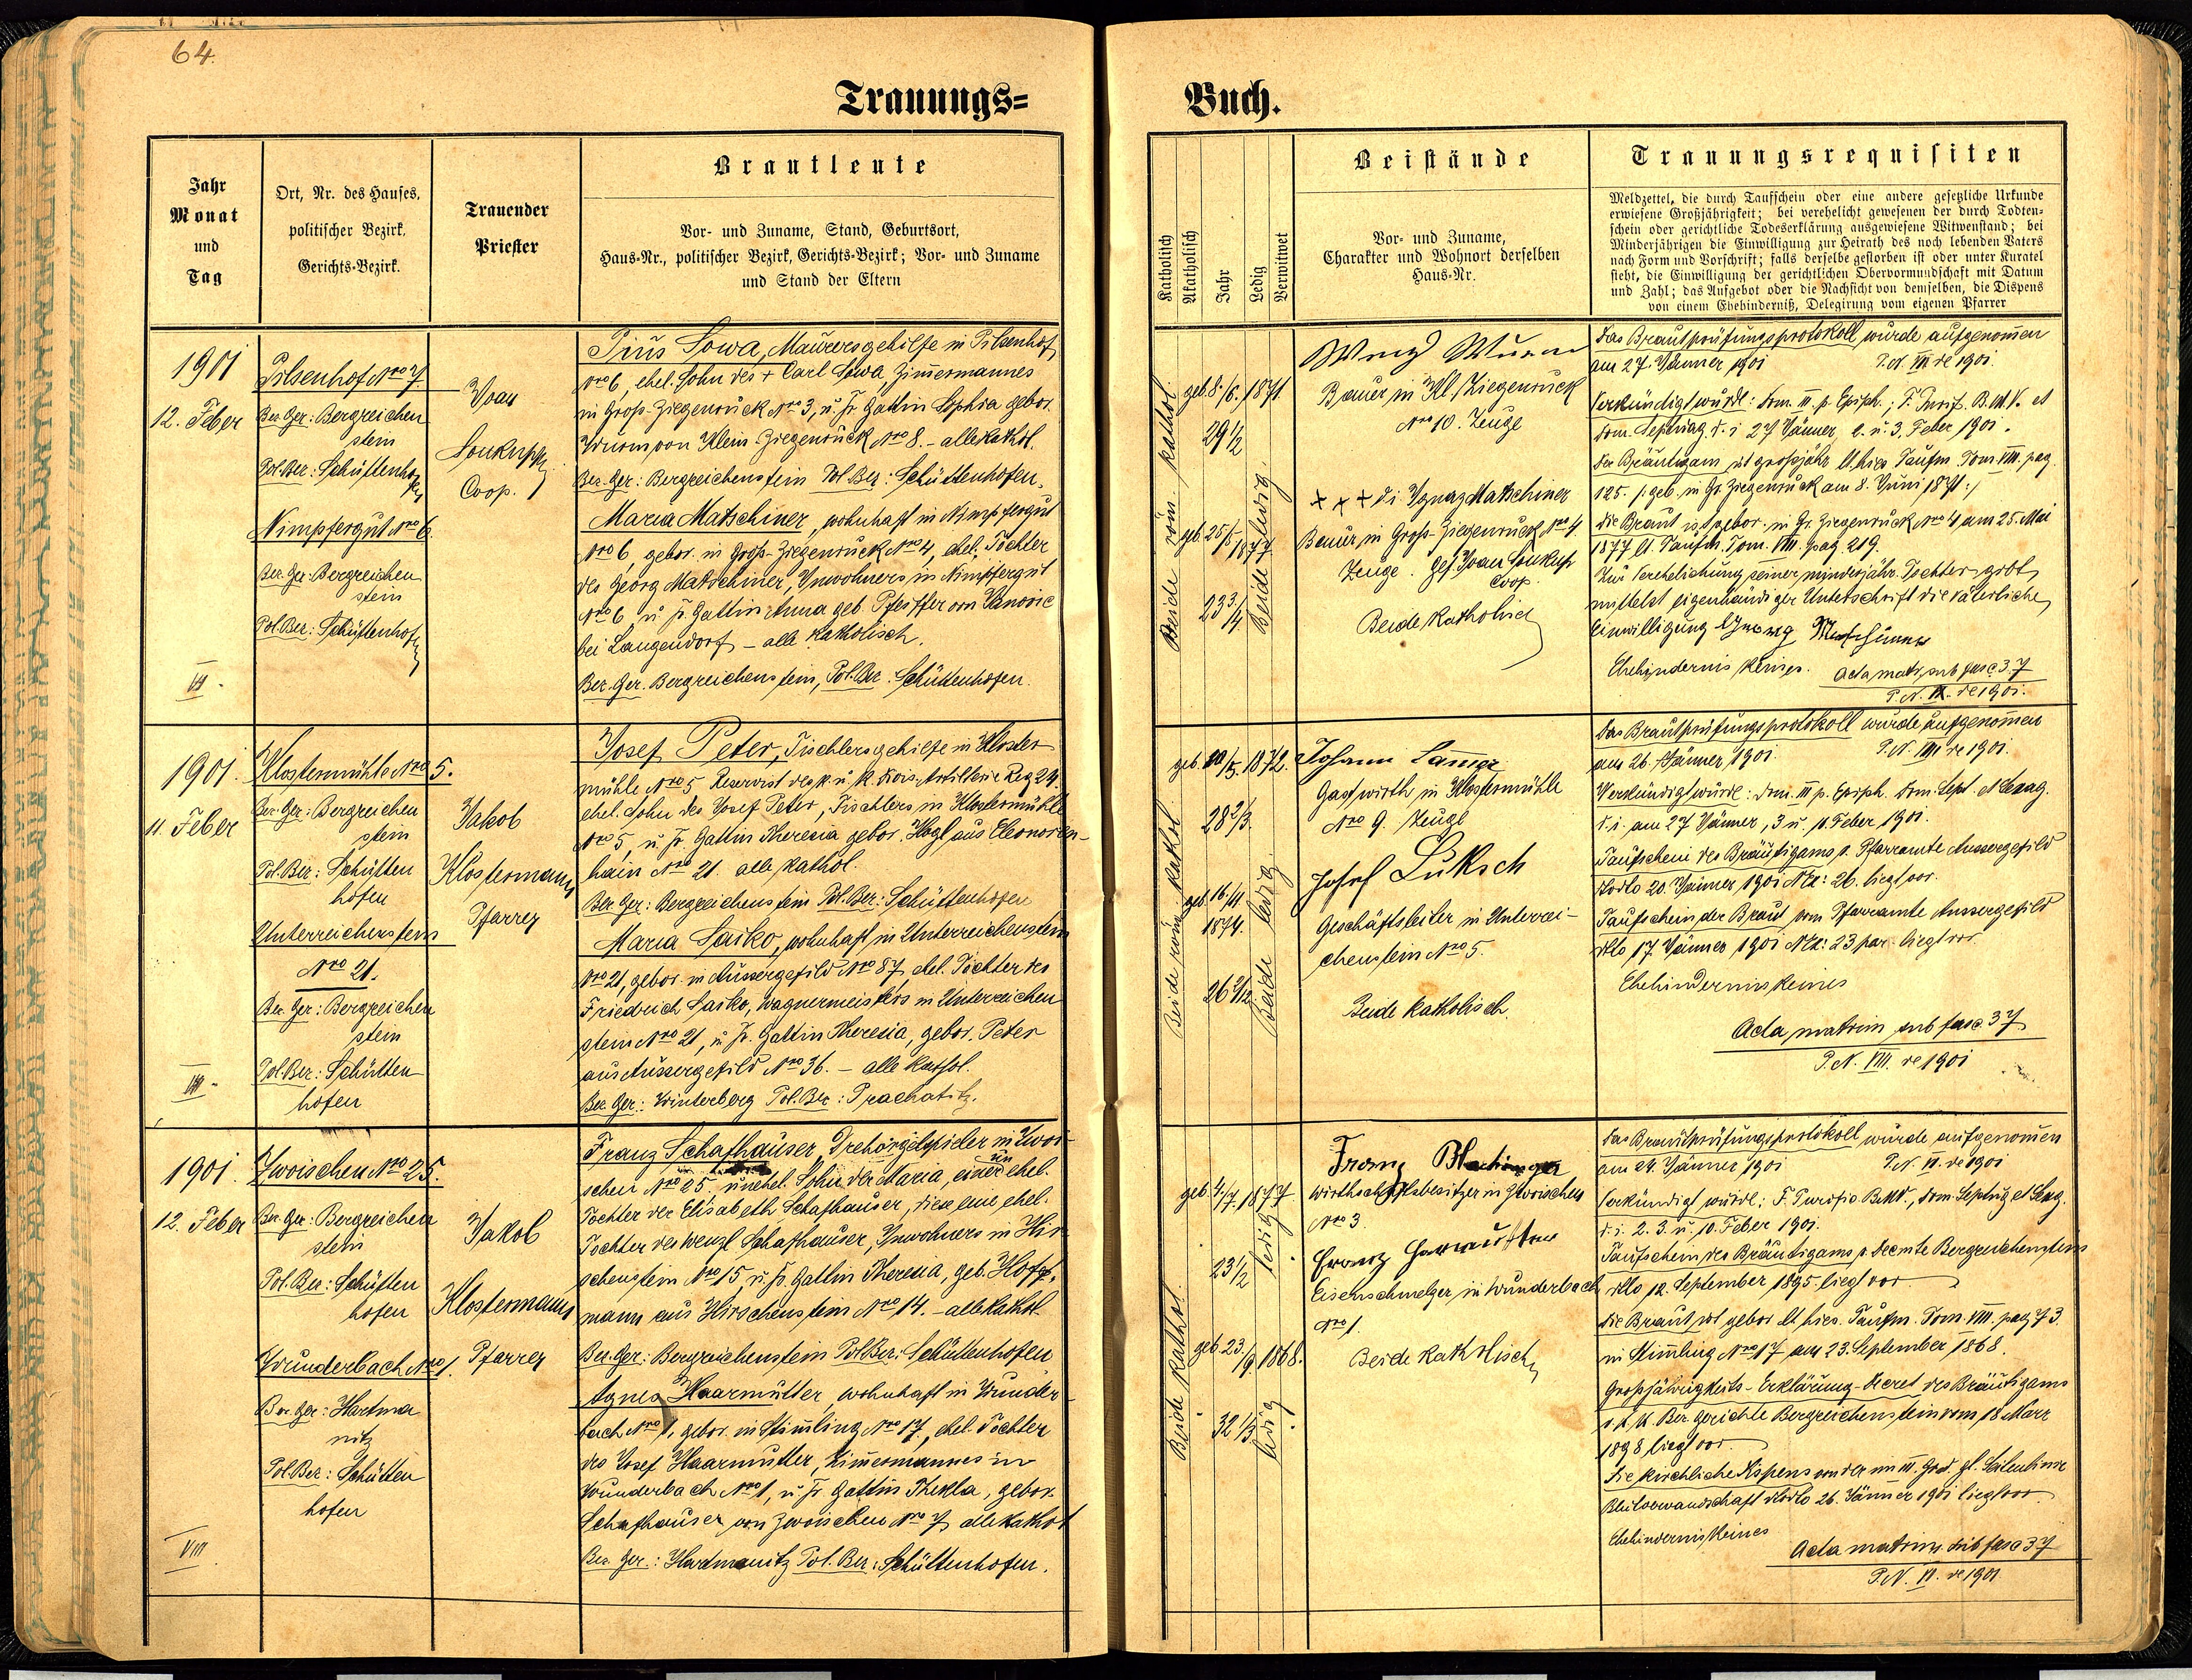 64.
Trauungs=
Buch.
Jahr
Monat
und
Tag
Ort, Nr. des Hauses,
politischer Bezirk,
Gerichts-Bezirk.
Trauender
Priester
Brautleute
Vor- und Zuname, Stand, Geburtsort,
Haus-Nr., politischer Bezirk, Gerichts-Bezirk; Vor- und Zuname
und Stand der Eltern
Katholisch
Akatholisch
Jahr
Ledig
Verwitwet
Beistände
Vor- und Zuname,
Charakter und Wohnort derselben
Haus-Nr.
Trauungsrequisiten
Meldzettel, die durch Taufschein oder eine andere gesetzliche Urkunde
erwiesene Großjährigkeit; bei verehelicht gewesenen der durch Todten-
schein oder gerichtliche Todeserklärung ausgewiesene Witwenstand; bei
Minderjährigen die Einwilligung zur Heirath des noch lebenden Vaters
nach Form und Vorschrift; falls derselbe gestorben ist oder unter Kuratel
steht, die Einwilligung der gerichtlichen Obervormundschaft mit Datum
und Zahl; das Aufgebot oder die Nachsicht von demselben, die Dispens
von einem Ehehinderniß, Delegirung vom eigenen Pfarrer
1901
12. Feber
VII.
Pilsenhof Nro 7
Bez. Ger: Bergreichen
stein
Pol. Bez: Schüttenhofen
Nimpfergut Nro 6.
Bez. Ger: Bergreichen
stein
Pol. Bez: Schüttenhofen
Ivan
Soukupp
Coop.
Pius Sowa, Maurersgehilfe in Pilsenhof
Nro 6, ehel. Sohn des + Carl Sowa Zimmermannes
in Groß-Ziegenruck Nro 3, u. fr. Gattin Sophia gebor.
Wurm von Klein-Ziegenruck Nro 8. - alle kathol.
Bez. Ger: Bergreichenstein Pol. Bez: Schüttenhofen.
Maria Matschiner, wohnhaft in Nimpfergut
Nro 6, gebor. in Groß-Ziegenruck Nro 4, ehel. Tochter
des Georg Matschiner, Inwohners in Nimpfergut
Nro 6 u. fr. Gattin Anna geb. Pfeiffer von
bei Langendorf - alle katholisch.
Bez. Ger. Bergreichenstein, Pol. Bez. Schüttenhofen.
Beide röm. kathol.
geb. 8./6. 1871
29 1/2
geb. 25/5 1877
23 3/4
Beide ledig.
Wenzl Wurm
Bauer in Kl. Ziegenruck
Nro 10. Zeuge
+ + + di. Ignaz Matschiner
Bauer in Groß-Ziegenruck Nro 4.
Zeuge. Gef. Ivan Soukup
Coop.
Beide katholisch
Das Brautprüfungsprotokoll wurde aufgenommen
am 27. Jänner 1901 P.N. VII de 1901.
Verkündigt wurde: Dom. III. p. Epiph.; F. Purif. B.M.V. et
Dom. Septuag. d. i. 27 Jänner, 2. u. 3. Feber 1901.
Der Bräutigam ist großjähr. lt. hies. Taufm. Tom. VIII. pag.
125. /: geb. in Gr. Ziegenruck am 8. Juni 1871 :/
Die Braut ist gebor. in Gr. Ziegenruck Nro 4 am 25. Mai
1877 lt. Taufm. Tom. VIII. pag. 219.
Zur Verehelichung seiner minderjähr. Tochter gibt
mittelst eigenhändiger Unterschrift die väterliche
Einwilligung Georg Matschiner
Ehehindernis keines. Acta matr. sub fasc. 37
P.N. IX. de 1901.
1901.
11. Feber
VII.
Klostermühle Nro 5.
Bez. Ger: Bergreichen
stein
Pol. Bez: Schütten
hofen
Unterreichenstein
Nro 21.
Bez. Ger: Bergreichen
stein
Pol. Bez: Schütten
hofen
Jakob
Klostermann
Pfarrer
Josef Peter, Tischlersgehilfe in Kloster
mühle Nro 5 Reservist des k. u. k. Artillerie Reg 24.
ehel. Sohn des Josef Peter, Tischlers in Klostermühle
Nro 5, u. fr. Gattin Theresia gebor. Hogl aus Eleonoren-
hain Nro 21. alle kathol.
Bez. Ger: Bergreichenstein Pol. Bez: Schüttenhofen
Maria Saiko, wohnhaft in Unterreichenstein
Nro 21, gebor. in Aussergefild Nro 87, ehel. Tochter des
Friedrich Saiko, Wagnermeisters in Unterreichen
stein Nro 21, u. fr. Gattin Theresia, gebor. Peter
aus Aussergefild Nro 36. - alle kathol.
Bez. Ger: Winterberg Pol. Bez: Prachatitz.
Beide röm. kathol.
1872.
28 2/3.
geb. 16/11
1874.
26 2/12
Beide ledig
Johann
Gastwirth in Klostermühle
Nro 9. Zeuge
Josef Luksch
Geschäftsleiter in Unterrei-
chenstein Nro 5.
Beide katholisch.
Das Brautprüfungsprotokoll wurde aufgenommen
am 26. Jänner 1901. P.N. VIII de 1901.
Verkündigt wurde: Dom. III p. Epiph. Dom. Sept. et Sexag.
d. i. am 27 Jänner, 3 u. 10. Feber 1901.
Taufschein des Bräutigams v. Pfarramte Aussergefild
ddto 20. Jänner 1901 NEx: 26. liegt vor.
Taufschein der Braut vom Pfarramte Aussergefild
ddto 17 Jänner 1901 NEx: 23 liegt vor.
Ehehindernis keines
Acta matrim sub fasc 37
P.N. VIII. de 1901
1901.
12. Feber
VIII
Zwoischen Nro 25.
Bez. Ger: Bergreichen
stein
Pol. Bez: Schütten
hofen
Wunderbach Nro 1.
Bez. Ger: Hartma
nitz
Pol. Bez: Schütten
hofen
Jakob
Klostermann
Pfarrer
Franz Schafhauser, Drehorgelspieler in Zwoi-
schen Nro 25, unehel. Sohn der Maria, einer unehel.
Tochter der Elisabeth Schafhauser, diese eine ehel.
Tochter des Wenzl Schafhauser, Inwohners in Hir-
schenstein Nro 15 u. fr. Gattin Theresia, geb. Hoff-
mann aus Hirschenstein Nro 14. - alle kathol.
Bez. Ger: Bergreichenstein Pol. Bez: Schüttenhofen
Agnes Haarmutter, wohnhaft in Wunder-
bach Nro 1, gebor. in Stimling Nro 17, ehel. Tochter
des Josef Haarmutter, Zimmermannes in
Wunderbach Nro 1, u. fr. Gattin Thekla, gebor.
Schafhauser von Zwoischen Nro 7 alle kathol
Bez. Ger.: Hartmanitz Pol. Bez: Schüttenhofen.
Beide kathol.
geb. 4./7. 1877
23 1/2
ledig
geb. 23./9. 1868.
32 1/3
ledig.
Franz
Wirthschaftsbesitzer in Zwoischen
Nro 3.
Franz
Eisenschmelzer in Wunderbach
Nro 1.
Beide katholisch
Das Brautprüfungsprotokoll wurde aufgenommen
am 24. Jänner 1901 P.N. VI. de 1901
Verkündigt wurde: F. Purific B.M.V., Dom. Septuag et Sexag.
d. i. 2. 3. u. 10. Feber 1901.
Taufschein des Bräutigams v. Decante Bergreichenstein
ddto 12. September 1895 liegt vor.
Die Braut ist gebor. lt. hies. Taufm. Tom. VIII. pag 73.
in Stimling Nro 17 am 23. September 1868.
Großjährigkeits-Erklärung-Decret des Bräutigams
v. k. k. Bez. Gerichte Bergreichenstein vom 18 März
1898 liegt vor.
Die kirchliche Dispens von der im III. Grad. gl. Seitenlinie
Blutsverwandschaft ddto 26. Jänner 1901 liegt vor.
Ehehindernis keines
Acta matrim. sub fasc 37
P.N. VI. de 1901